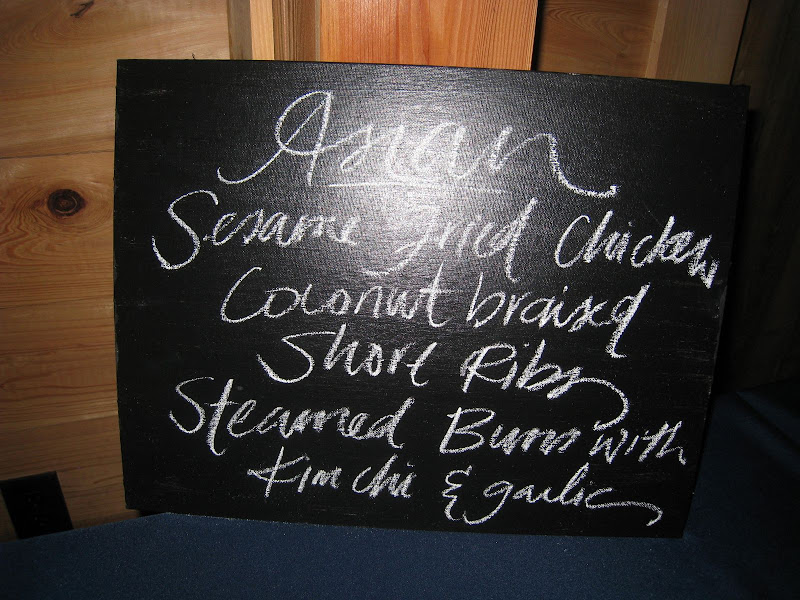 Asian
Sesame fried Chicken
Coconut braised
Short Ribs
Steamed Buns with
Kimchi & garlic